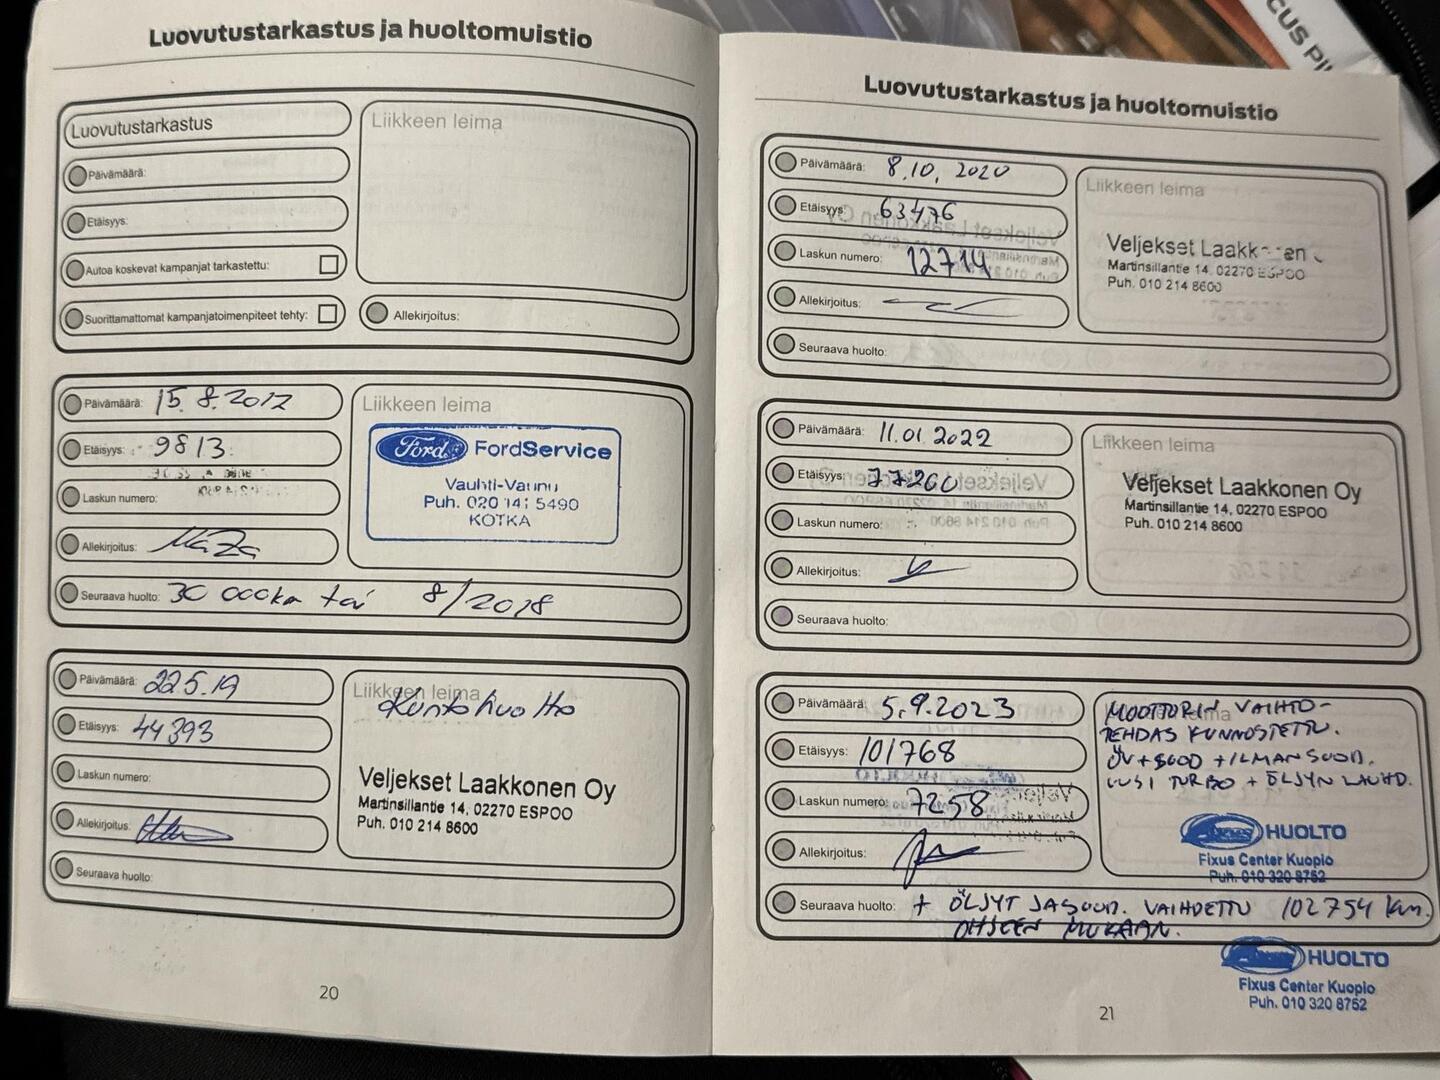 CUS PI
Luovutustarkastus ja huoltomuistio
Luovutustarkastus
Liikkeen leima
Päivämäärä:
Etäisyys:
Autoa koskevat kampanjat tarkastettu:
Suorittamattomat kampanjatoimenpiteet tehty:
Allekirjoitus:
Päivämäärä: 15.8.2017
Etäisyys: 9813
Laskun numero:
Allekirjoitus:
Liikkeen leima
Ford FordService
Vauhti-Vaunu
Puh. 020 141 5490
KOTKA
Seuraava huolto: 30 000km tai 8/2018
Päivämäärä: 22.5.19
Etäisyys: 44393
Laskun numero:
Allekirjoitus:
Liikkeen leima
Kuntohuolto
Veljekset Laakkonen Oy
Martinsillantie 14, 02270 ESPOO
Puh. 010 214 8600
Seuraava huolto:
20
Luovutustarkastus ja huoltomuistio
Päivämäärä: 8.10.2020
Etäisyys: 63476
Laskun numero: 12714
Allekirjoitus:
Liikkeen leima
Veljekset Laakkonen
Martinsillantie 14, 02270 ESPOO
Puh. 010 214 8600
Seuraava huolto:
Päivämäärä: 11.01.2022
Etäisyys: 77260
Laskun numero:
Allekirjoitus:
Liikkeen leima
Veljekset Laakkonen Oy
Martinsillantie 14, 02270 ESPOO
Puh. 010 214 8600
Seuraava huolto:
Päivämäärä: 5.9.2023
Etäisyys: 101768
Laskun numero: 7258
Allekirjoitus:
Liikkeen leima
MOOTTORIN VAIHTO-
TEHDAS KUNNOSTETTU.
ÖV+SUOD + ILMANSUOD.
UUSI TURBO + ÖLJYN LAUHD.
HUOLTO
Fixus Center Kuopio
Puh. 010 320 8752
Seuraava huolto: + ÖLJYT JA SUOD. VAIHDETTU 102754 km.
OHJEEN MUKAAN.
HUOLTO
Fixus Center Kuopio
Puh. 010 320 8752
21